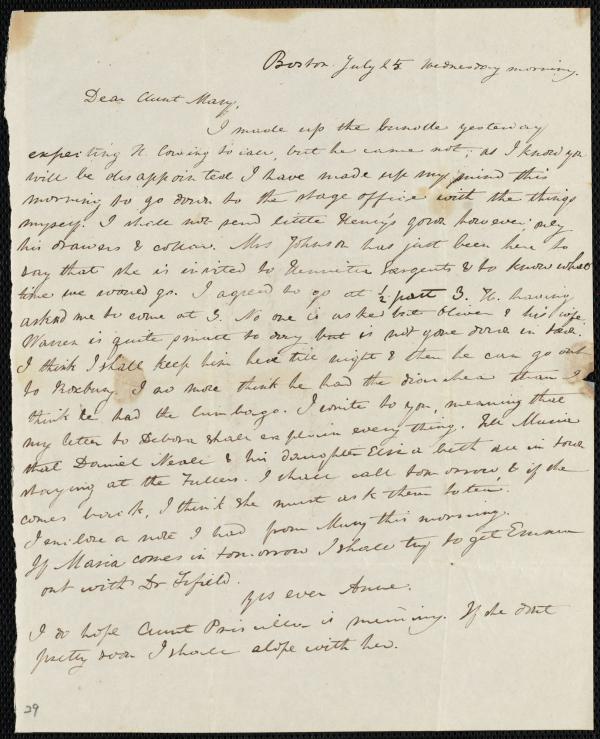 Boston July 25 Wednesday morning.
Dear Aunt Mary,
I made up the bundle yesterday
expecting N. Cowing to call, but he came not; as I know you
will be disappointed I have made up my mind this
morning to go down to the stage office with the things
myself. I shall not send little Henry's gown however; only
his drawers & collar. Mrs Johnson has just been here to
say that she is invited to Henrietta Sargents & to know what
time we would go. I agreed to go at ½ past 3. H. having
asked me to come at 3. No one is asked but Oliver & his wife
Warren is quite smart to day but is not gone down in town.
I think I shall keep him here till night & then he can go out
to Roxbury. I no more think he had the diarrhea than I
think he had the lumbago. I write to you, meaning that
my letter to Debora shall explain everything. Tell Maria
that Daniel Neall & his daughter Elizabeth are in town
staying at the Fullers. I shall call tomorrow, & if she
comes back, I think she must ask them to tea.
I enclose a note I had from Mary this morning.
If Maria comes in tomorrow I shall try to get Emma
out with Dr Fifield.
yrs ever Anne.
I do hope Aunt Priscilla is mending. If she dont
pretty soon I shall elope with her.
29